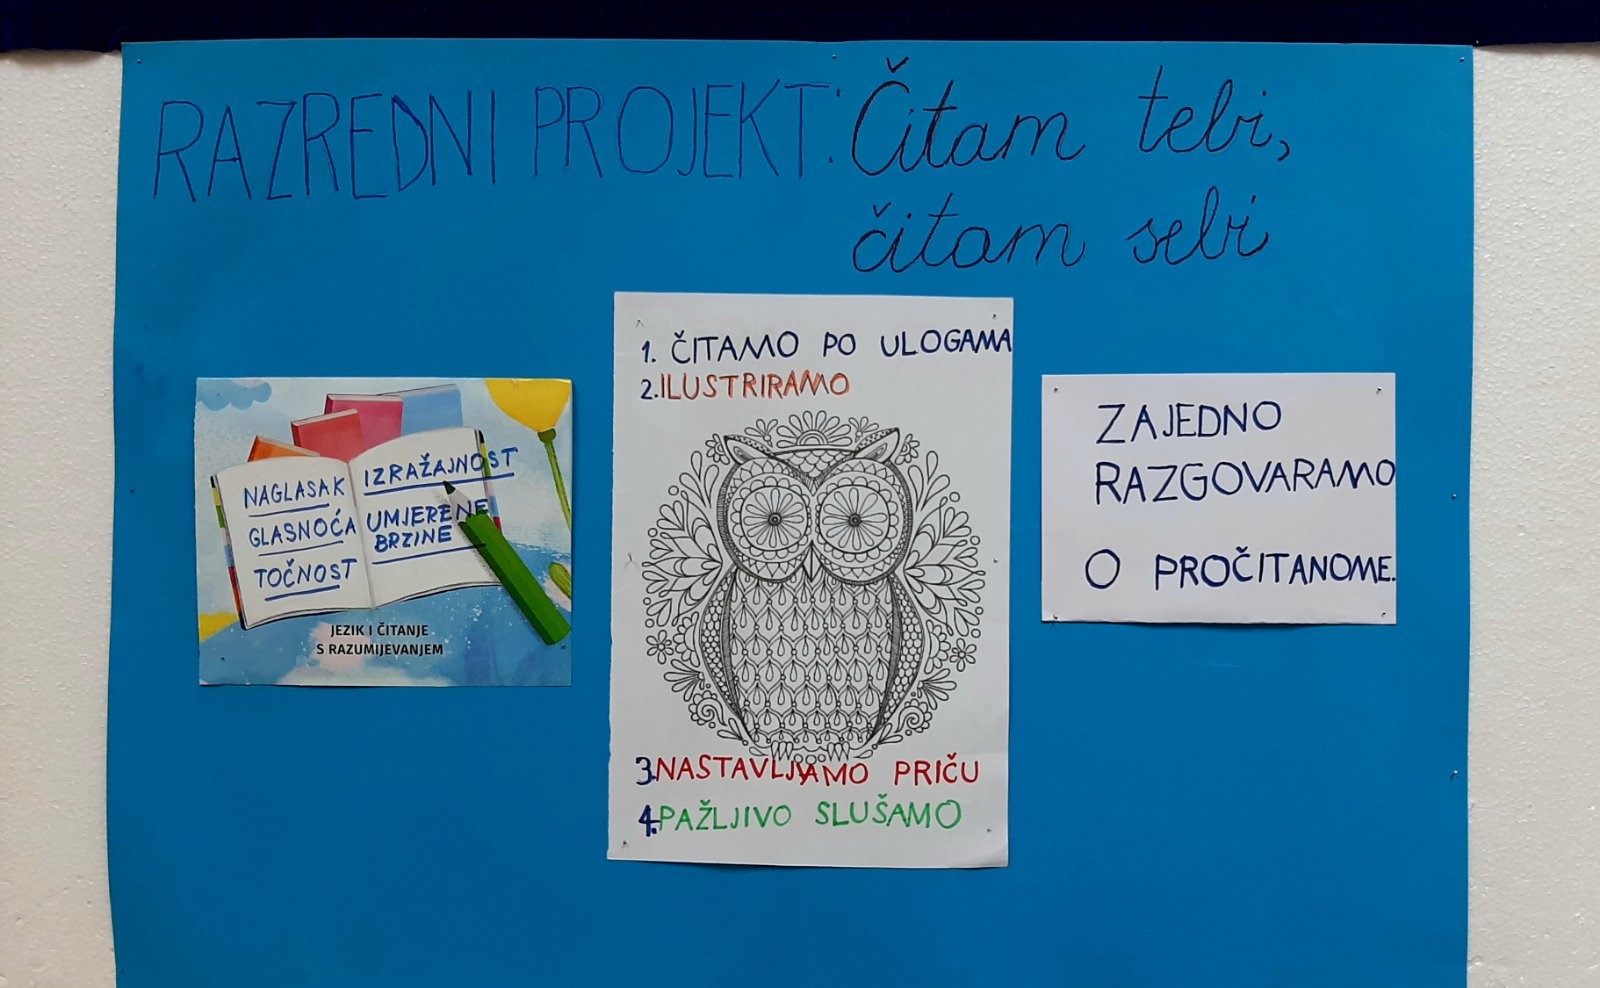 RAZREDNI PROJEKT: Čitam tebi,
čitam sebi
NAGLASAK
GLASNOĆA
TOČNOST
IZRAŽAJNOST
UMJERENE
BRZINE
JEZIK I ČITANJE
S RAZUMIJEVANJEM
1. ČITAMO PO ULOGAMA
2. ILUSTRIRAMO
3. NASTAVLJAMO PRIČU
4. PAŽLJIVO SLUŠAMO
ZAJEDNO
RAZGOVARAMO
O PROČITANOME.